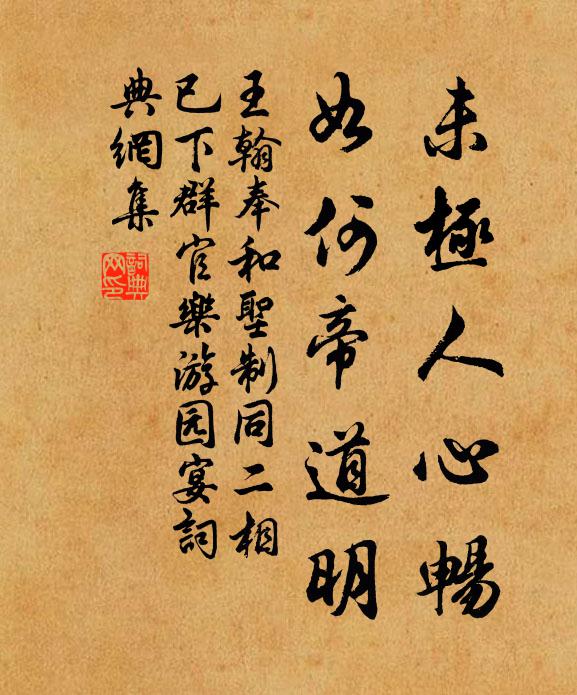 未極人心暢
如何帝道明
王翰奉和聖制同二相
已下群官樂游园宴詞
典網集
詞典网印